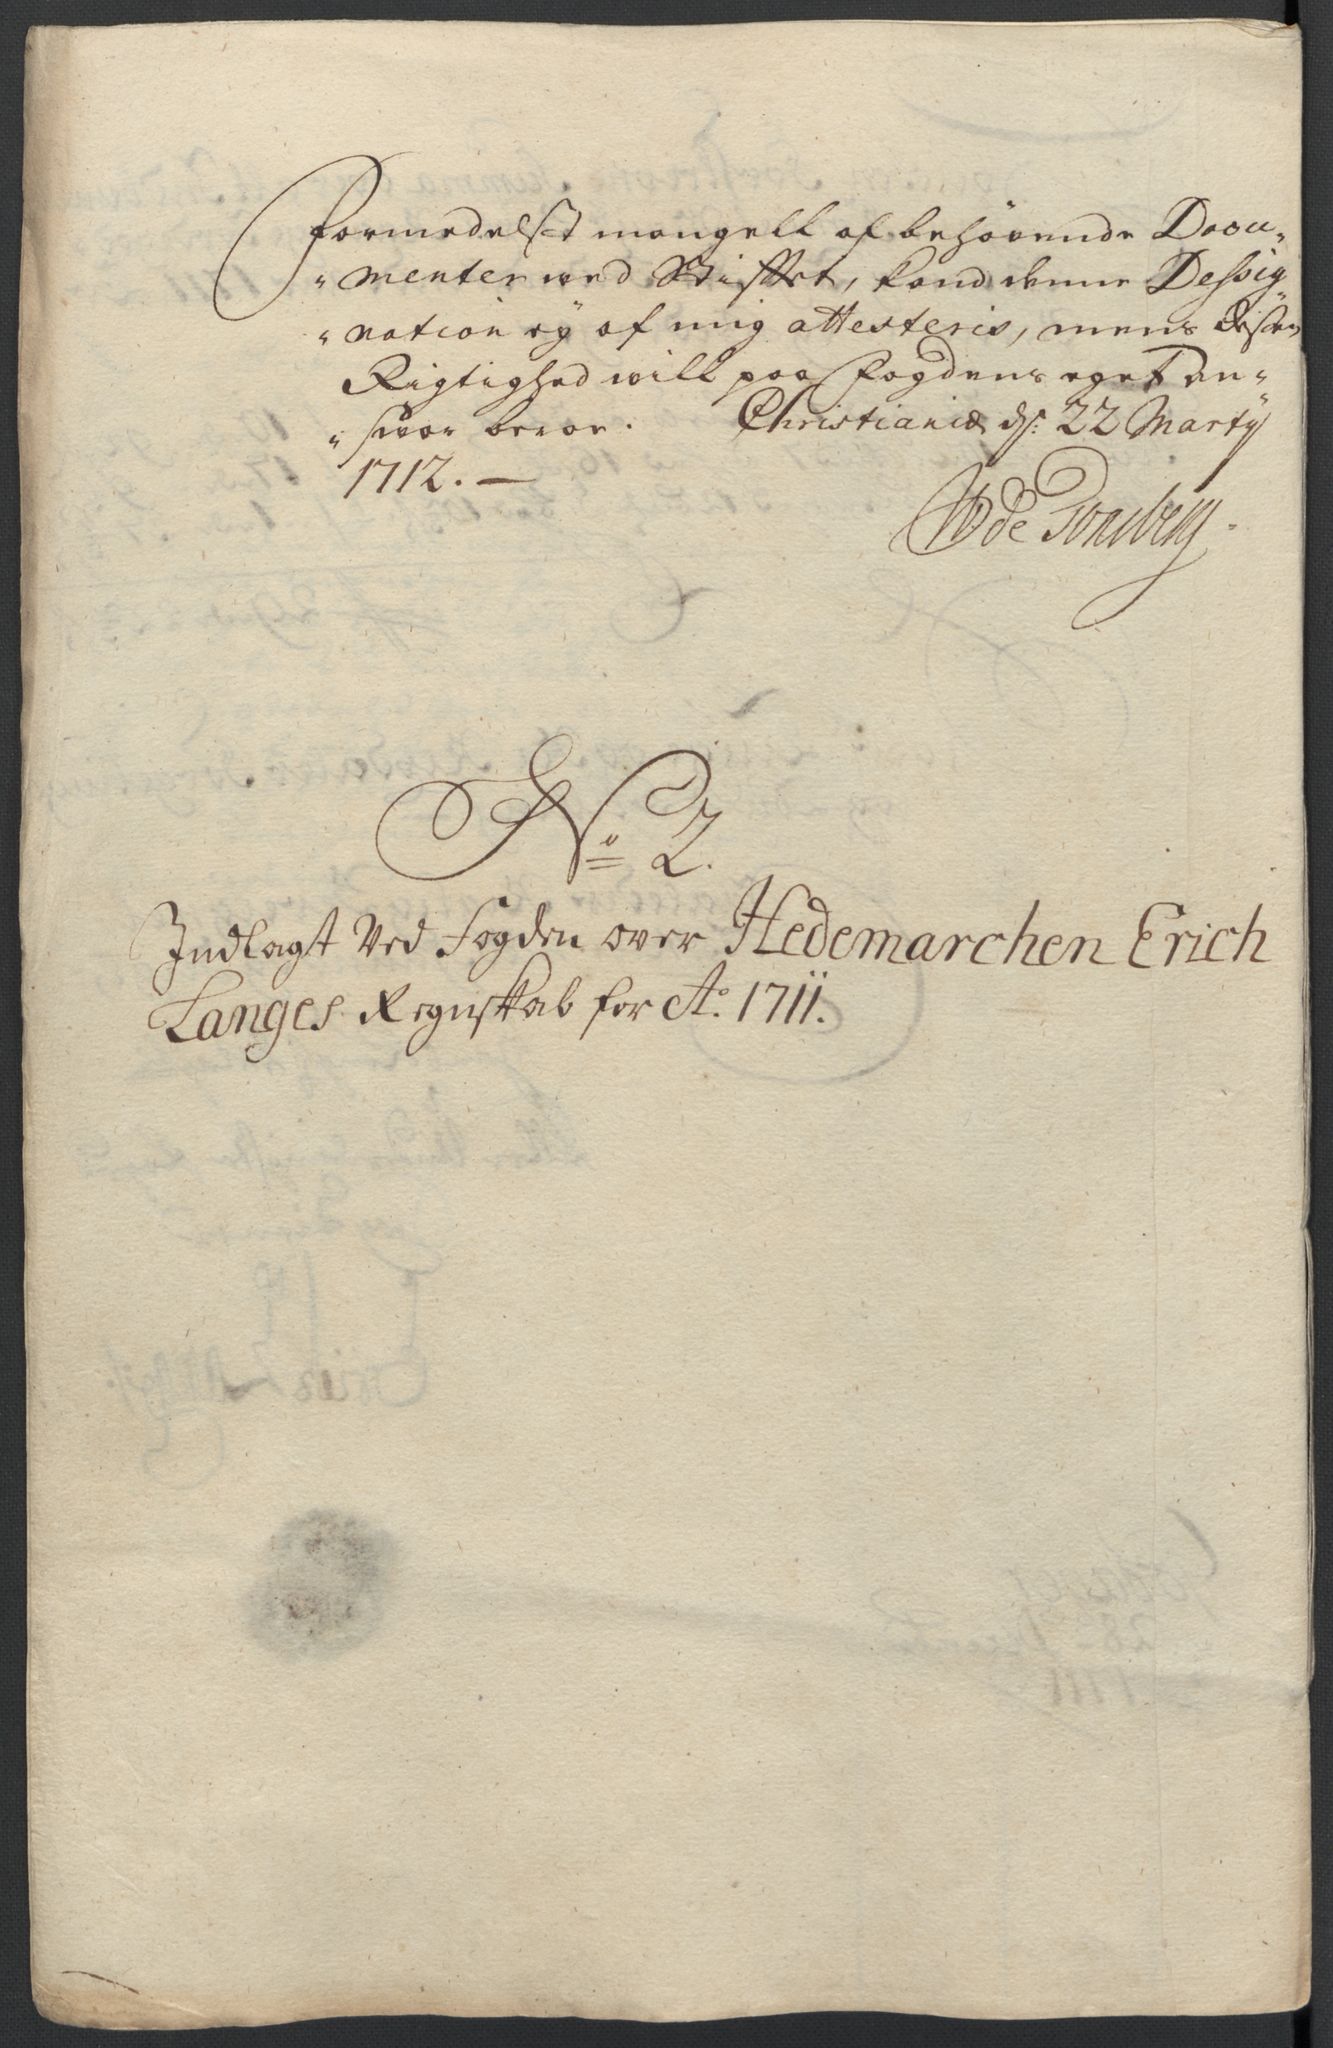 Formedelst mangell af behövende Docu-
"menter ved Stifftet, kand denne Dessig
"nation ey af mig attesteris, mens dissen
Rigtighed will paa Fogdens eget an-
"svar beroe. Christiania ds: 22 Marty
1712. —
WDe Tonsberg.
No 2.
Indlagt Ved Fogden over Hedemarchen Erich
Langes Regnskab for Ao. 1711.